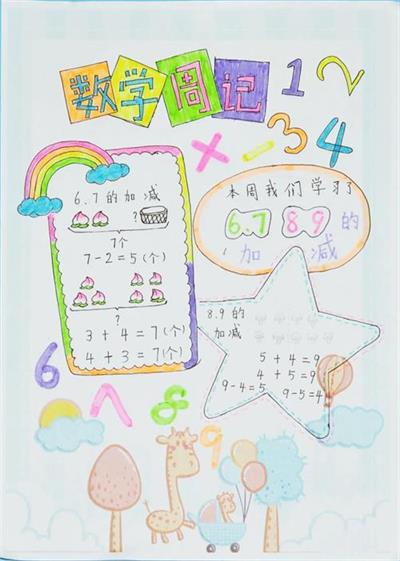 数学周记
1 2
× - 3 4
6.7的加减
?
7个
7-2=5(个)
?
3+4=7(个)
4+3=7(个)
本周我们学习了
6.7 8.9的
加 减
8.9的
加减
5+4=9
4+5=9
9-4=5 9-5=4
6 7 8 9